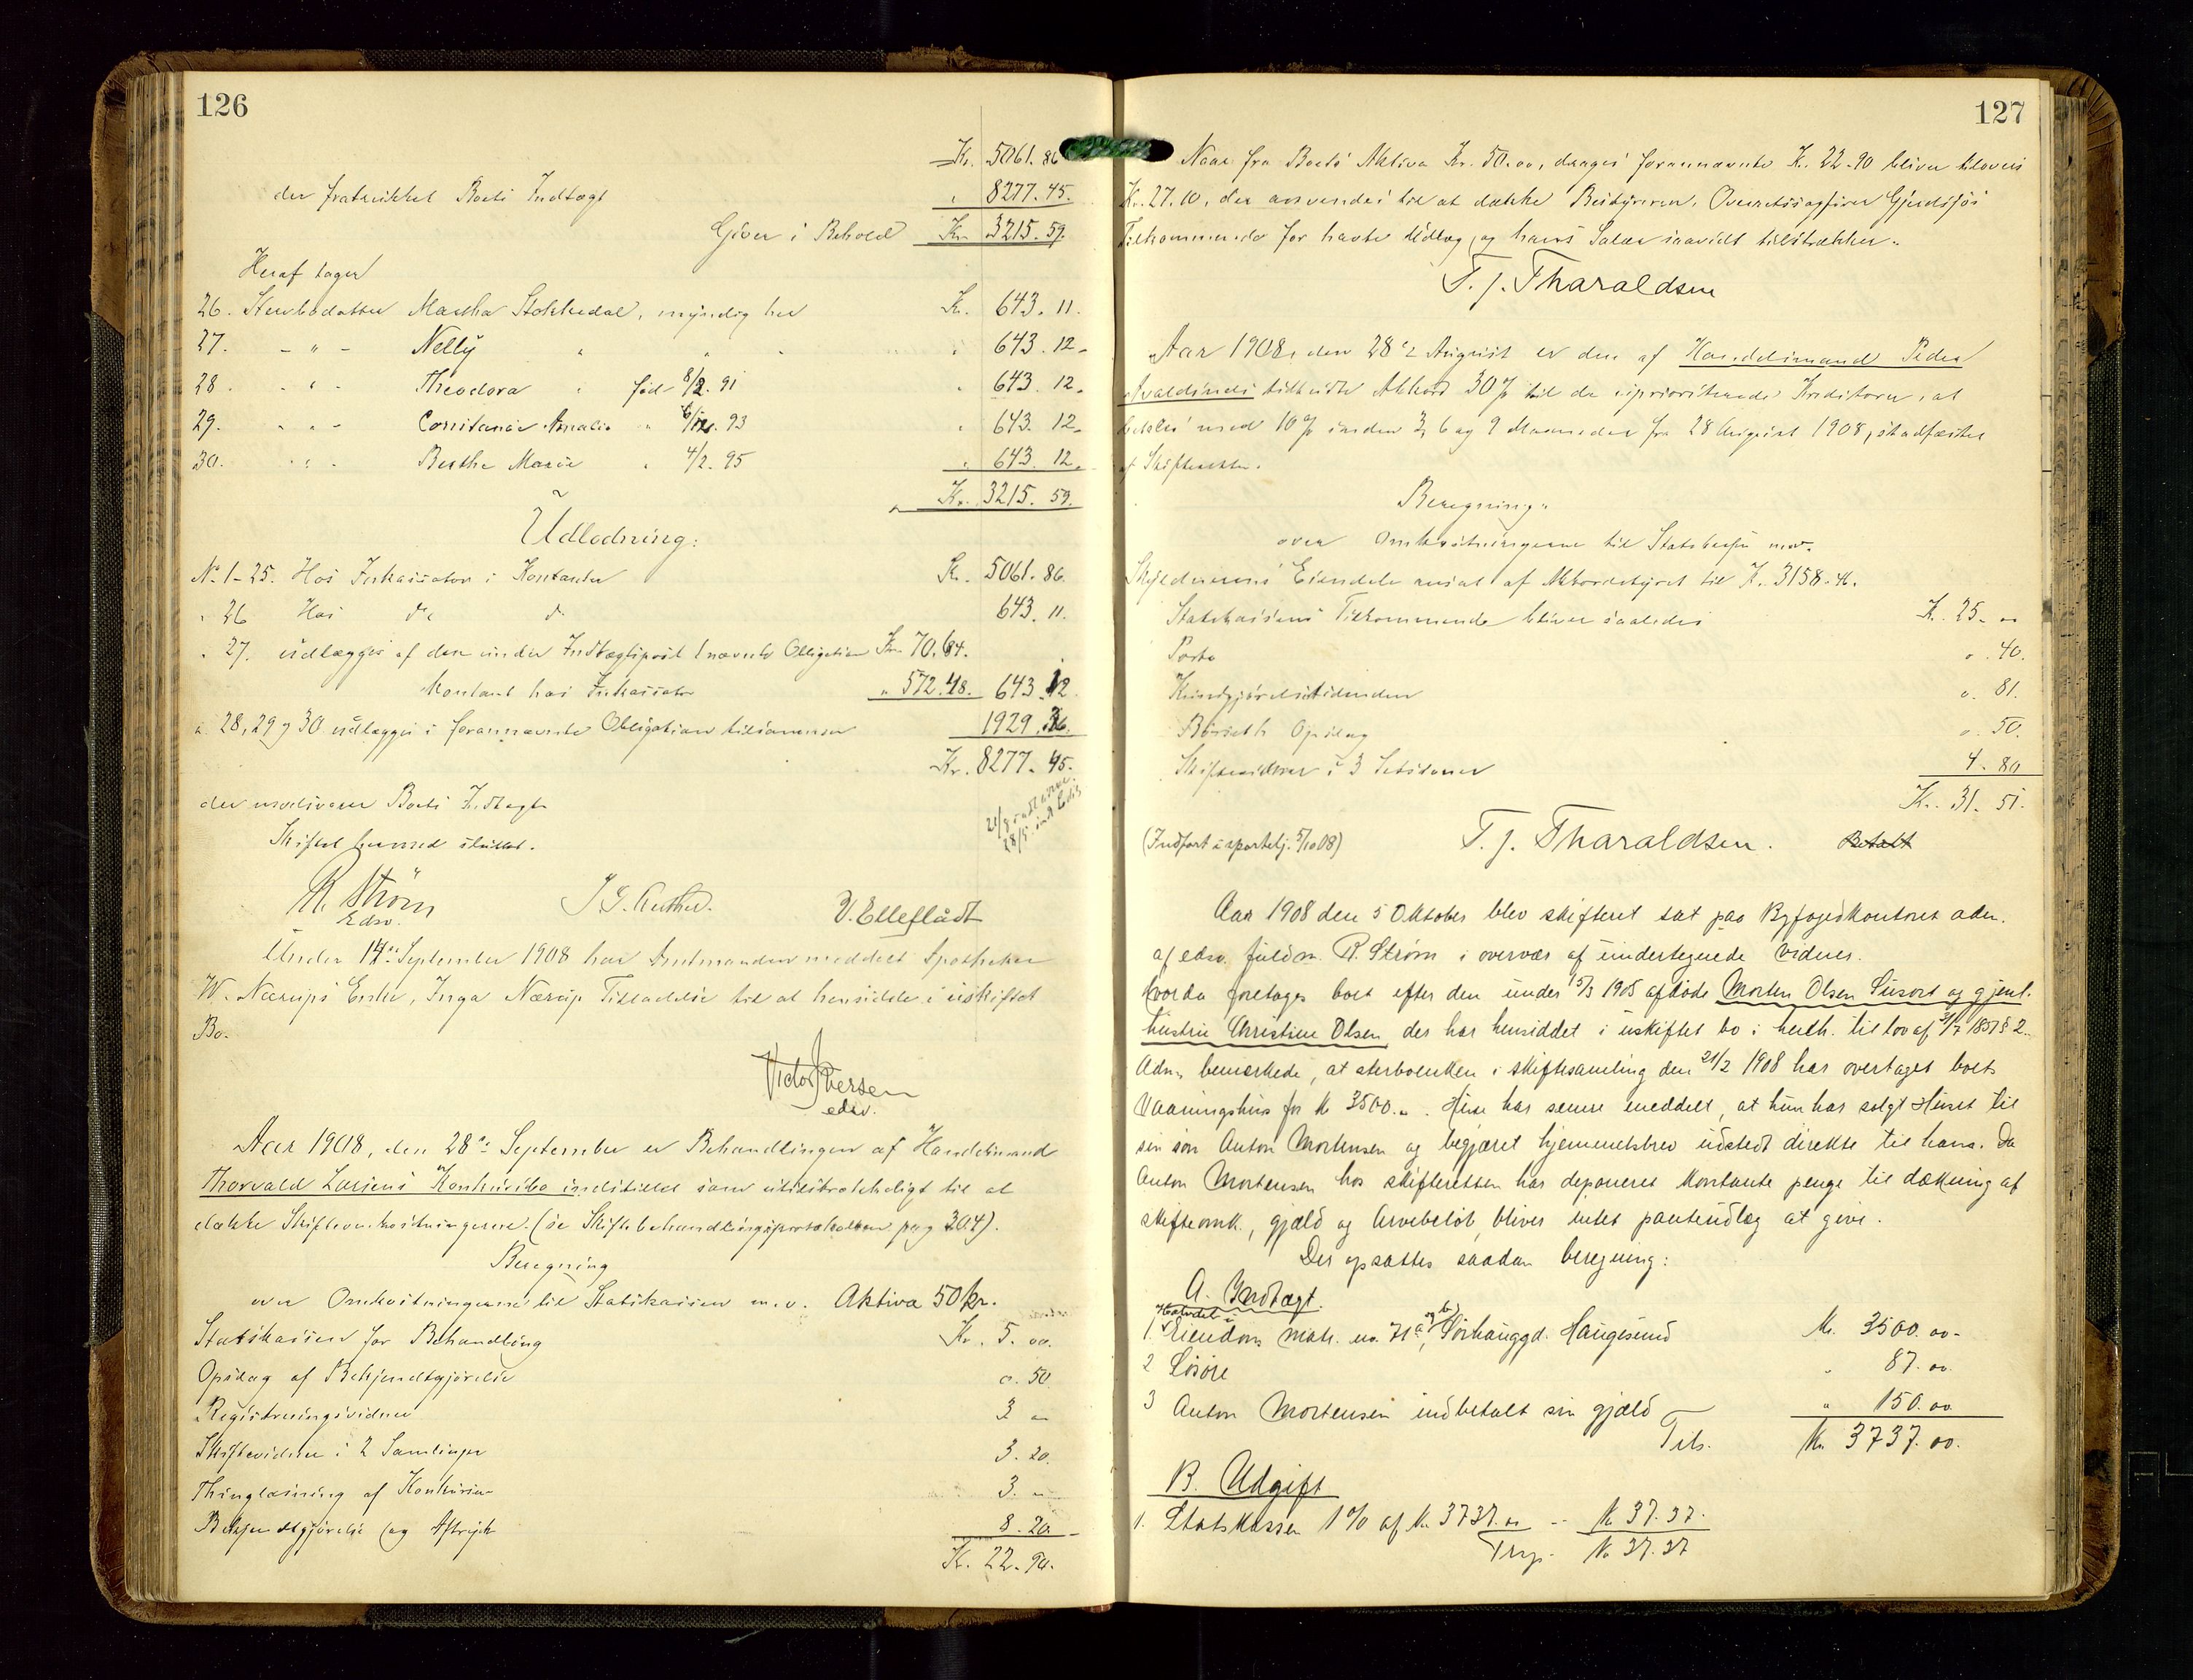 126
Kr. 5061. 86
der fratrukket Boets Indtægt " 8277. 45.
Giver i Behold Kr. 3215. 59.
Heraf tager
26. Stervbodatter Martha Stokkedal, myndig her Kr. 643. 11.
27. - " - Nelly " " 643. 12.
28. - " - Theodora " fød 8/2. 91 " 643. 12.
29. - " - Constance Amalie " 6/12. 93 " 643. 12.
30. - " - Berthe Marie " 4/2. 95 " 643. 12.
Kr. 3215. 59.
Udlodning:
No 1-25. Hos Inkassator i Kontanter Kr. 5061. 86.
" 26 Hos do do 643. 11.
" 27. udlægges af den under Indtægtspost 1 nævnte Obligation Kr. 70. 64.
Kontant hos Inkassator " 572. 48. 643. 12.
" 28, 29 og 30 udlægges i forannævnte Obligation tilsammen 1929. 36.
Kr. 8277. 45.
der modsvarer Boets Indtægt
Skiftet hermed sluttet.
R. Strøm
Edsv.
V. Elleflådt
Under 14de September 1908 har Amtmanden meddelt Apotheker
W. Nærups Enke, Inga Nærup Tilladelse til at hensidde i uskiftet
Bo.
Victor Iversen
edsv.
Aar 1908, den 28de September er Behandlingen af Handelsmand
Thorvald Larsens Konkursbo indstillet som utilstrækkeligt til at
dække Skifteomkostningerne. (se Skiftebehandlingsprotokollen pag 304).
Beregning
over Omkostningerne til Statskassen m.v. Aktiva 50 kr.
Statskassen for Behandling Kr. 5. 00.
Opslag af Bekjendtgjørelse 0. 50.
Registreringsvidner 3 "
Skiftevidner i 2 Samlinger 3. 20.
Thinglæsning af Konkursen 3. "
Bekjendtgjørelse og Aftryk 8. 20
Kr. 22. 90.
127
Naar fra Boets Aktiva Kr. 50.00, drages forannævnte Kr. 22.90 bliver tilovers
Kr. 27.10, der anvendes til at dække Bestyreren, Overretssagfører Gjerdsjøs
Tilkommende for havte Udlæg, og hans Salær saavidt tilstrækker.
T. J. Tharaldsen
Aar 1908, den 28de August er den af Handelsmand Peder
Avaldsnes tilbudte Akkord 30 % til de uprioriterede Kreditorer, at
betales med 10 % inden 3, 6 og 9 Maaneder fra 28 August 1908, stadfæstet
af Skifteretten.
Beregning
over Omkostningerne til Statskassen m.v.
Skyldnerens Eiendele ansat af Akkordstyret til K. 3158. 46.
Statskassens Tilkommende bliver saaledes K. 25. 00
Porto 0. 40.
Kundgjørelsestidenden 0. 81.
Børseth Opslag 0. 50.
Skiftevidner i 3 Sessioner 4. 80
Kr. 31. 51.
(Indført i sportelj. 5/10 08) T. J. Tharaldsen. Betalt
Aar 1908 den 5 Oktober blev skifteret sat paa Byfogedkontoret adm.
af edsv. fuldm. R. Strøm i overvær af undertegnede vidner.
Hvorda foretages boet efter den under 15/3 1905 afdøde Morten Olsen Susort og gjenl.
hustru Christine Olsen, der har hensiddet i uskiftet bo i henh. til lov af 31/7 1851 § 2.
Adm. bemærkede, at sterboenken i skiftesamling den 21/2 1908 har overtaget boets
Vaaningshus for Kr 3500. ". Hun har senere meddelt, at hun har solgt Huset til
sin søn Anton Mortensen og begjæret hjemmelsbrev udstedt direkte til ham. Da
Anton Mortensen hos skifteretten har deponeret kontante penge til dækning af
skifteomk., gjæld og Arvebeløb, bliver intet panteudlæg at give.
Der opsattes saadan beregning:
A. Indtægt.
Halvdel i
1. Eiendom matr. no. 71 a og b, Sørhauggd. Haugesund Kr. 3500. 00-
2 Løsøre " 87. 00
3 Anton Mortensen indbetalt sin gjæld " 150. 00
Tils. Kr 3737. 00.
B. Udgift
1. Statskassen 1 % af Kr. 3737. 00 -- Kr 37. 37.
Trsp. Kr 37. 37